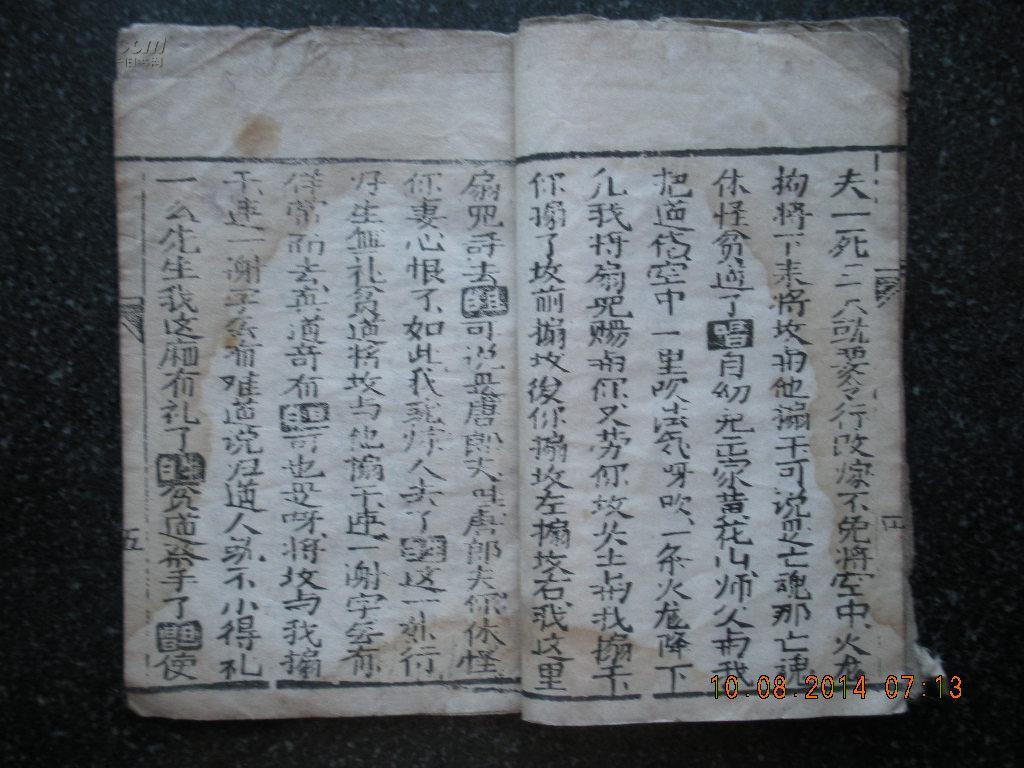 夫一死二人就要另行改嫁不免将空中火龙
拘将下来将坟与他搧干可说是亡魂那亡魂
休怪贫道了唱自幼儿出家黄花山师父与我
把道传空中一里吹法气呀吹一条火龙降下
儿我将扇咒赐与你又劳你坟头土与我搧干
你搧了坟前搧坟後你搧坟左搧坟右我这里
扇咒讶去可说是唐郎夫吐唐郎夫你休怪
你妻心恨了如此我乖师人去了这一娘行
好生無礼贫道将坟与他搧干连一谢字無有
徉常而去真道奇有可也是呀将坟与我搧
干连一谢字無有难道说归道人就不小得礼
一么先生我这厢有礼了貧道癸手了使
五
10.08.2014 07:13